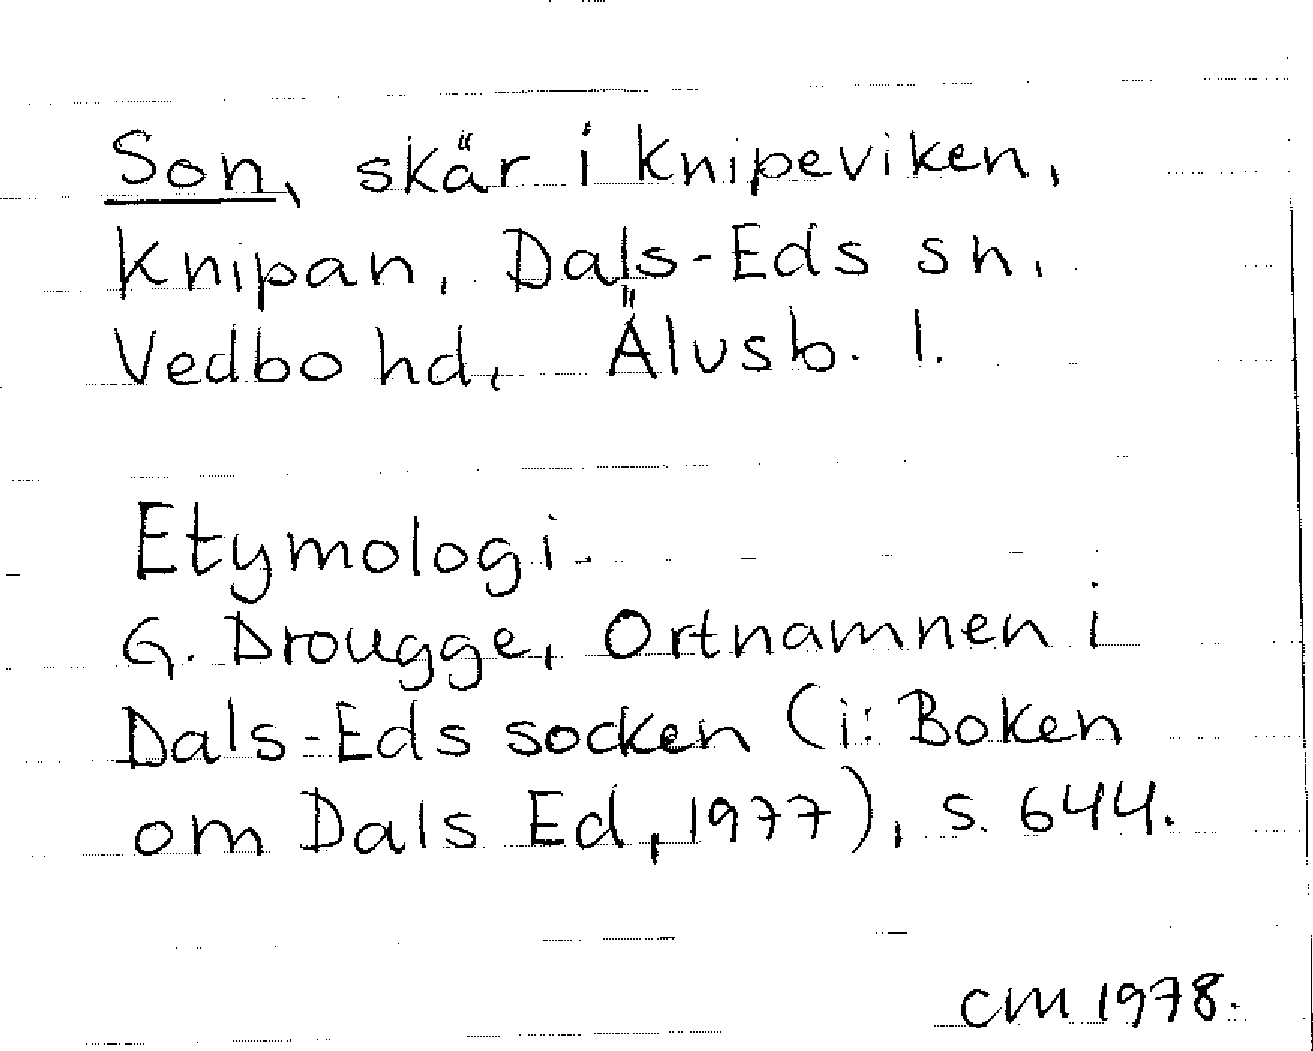 Son, skär i Knipeviken,
Knipan, Dals-Eds sn,
Vedbo hd, Älvsb. l.
Etymologi.
G. Drougge, Ortnamnen i
Dals-Eds socken (i: Boken
om Dals Ed, 1977), s. 644.
CM 1978.